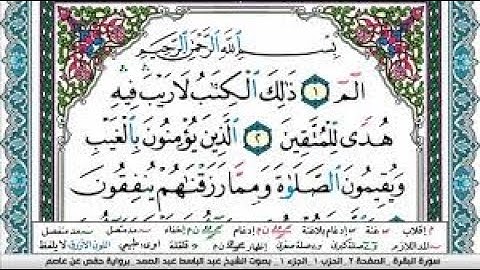 بِسْمِ ٱللَّهِ ٱلرَّحْمَٰنِ ٱلرَّحِيمِ
الٓمٓ ١ ذَٰلِكَ ٱلْكِتَٰبُ لَا رَيْبَ ۛ فِيهِ ۛ
هُدًى لِّلْمُتَّقِينَ ٢ ٱلَّذِينَ يُؤْمِنُونَ بِٱلْغَيْبِ
وَيُقِيمُونَ ٱلصَّلَوٰةَ وَمِمَّا رَزَقْنَٰهُمْ يُنفِقُونَ
م إقلاب غنة إدغام بلاغنة إدغام إخفاء مد متصل مد منفصل
المد اللازم صلة كبرى وصلة صغرى إظهار قلقلة أوى طبيعي اللون الأزرق لا يلفظ
سورة البقرة ـ الصفحة 2 ـ الحزب 1 ـ الجزء 1 ـ بصوت الشيخ عبد الباسط عبد الصمد ـ برواية حفص عن عاصم